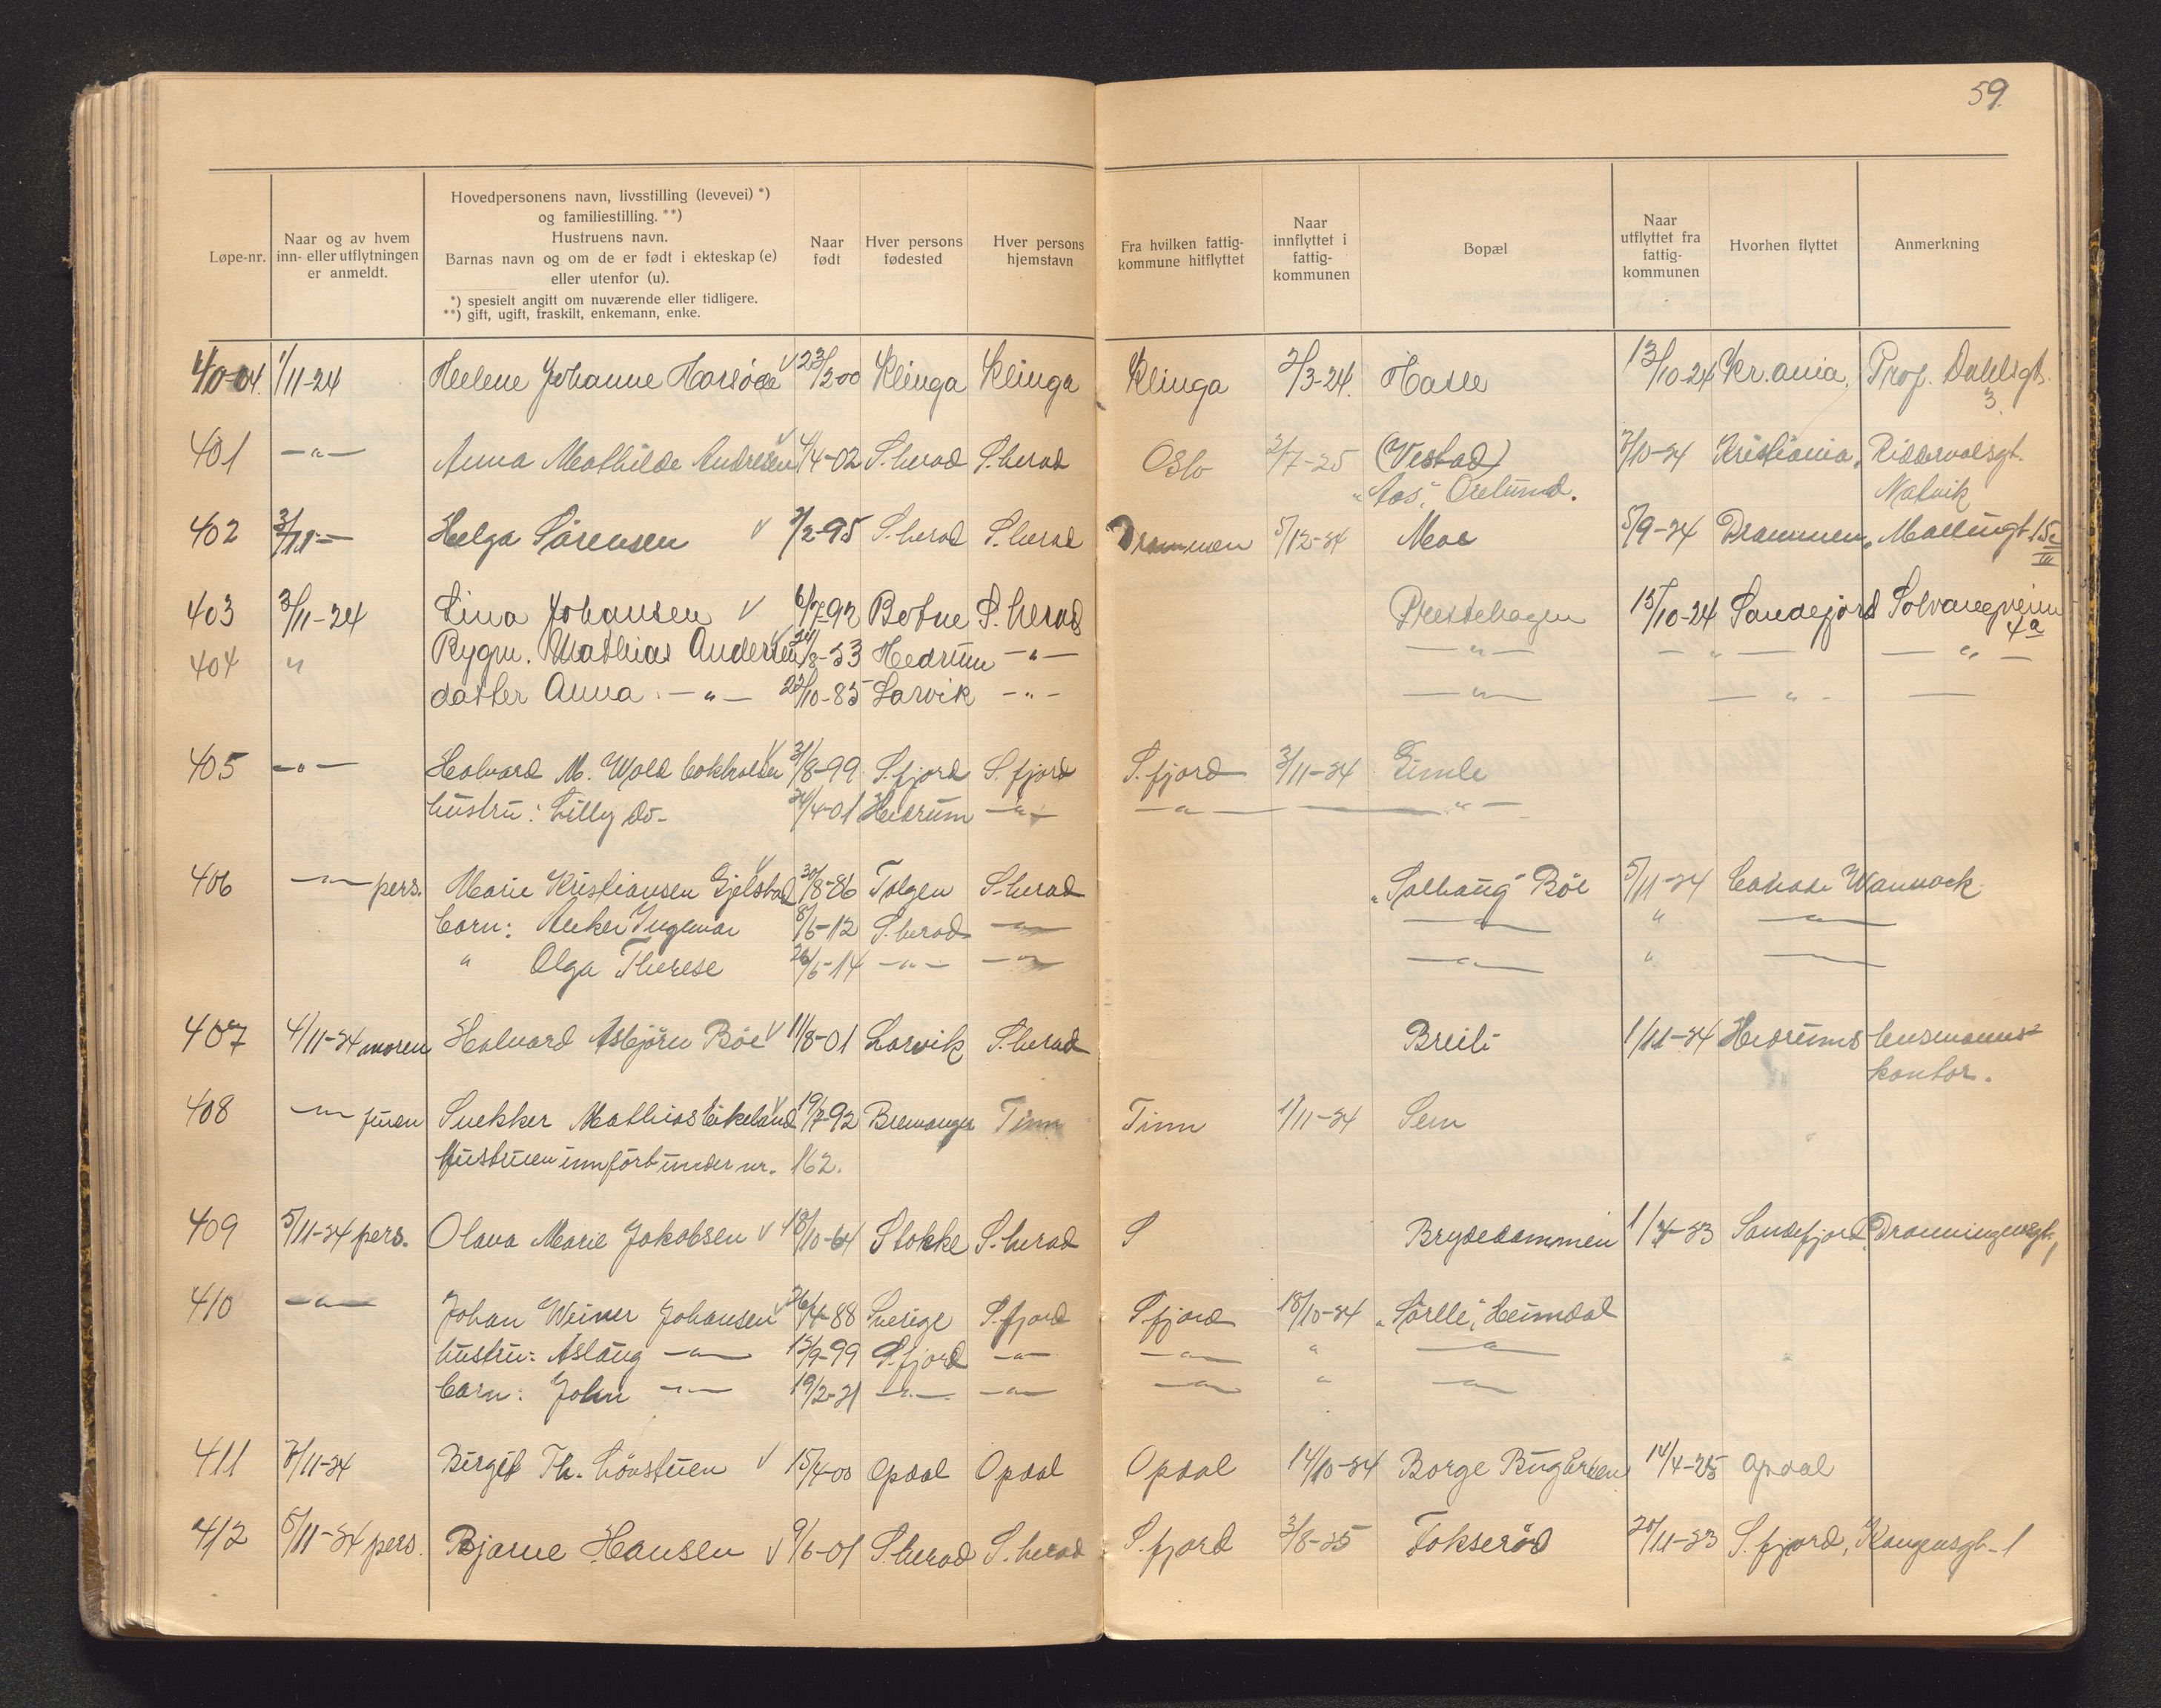 59.
Løpe-nr.
Naar og av hvem
inn- eller utflytningen
er anmeldt.
Hovedpersonens navn, livsstilling (levevei) *)
og familiestilling. **)
Hustruens navn.
Barnas navn og om de er født i ekteskap (e)
eller utenfor (u).
*) spesielt angitt om nuværende eller tidligere.
**) gift, ugift, fraskilt, enkemann, enke.
Naar
født
Hver persons
fødested
Hver persons
hjemstavn
Fra hvilken fattig-
kommune hitflyttet
Naar
innflyttet i
fattig-
kommunen
Bopæl
Naar
utflyttet fra
fattig-
kommunen
Hvorhen flyttet
Anmerkning
1/11-24 Helene Johanne 23/2 00 Klinga Klinga Klinga 2/3-24. Hasle 13/10-24 Kr.ania, Prof. Dahlsgt.
3.
401 -"- Anna Mathilde Andresen 4/4-02 S.herad S.herad Oslo 2/7-25 (Vestad) 7/10-24 Kristiania,
"Aas", 
402 Helga Sörensen V 7/2-95 S.herad S.herad Drammen 5/12-24 Moe 5/9-24 Drammen,
403 3/11-24 Lina Johansen V 6/7-92 Botne S.herad Prestehagen 15/10-24 Sandefjord Solvangveien
4a
404 " Rygm. Mathias Andersen 24/8-53 Hedrum -"- -"- -"- -"-
datter Anna -"- 22/10-85 Larvik -"- -"- -"-
405 -"- Halvard M. Wold 31/8-99 S.fjord S.fjord S.fjord 3/11-24 Gimle
hustru: Lilly do- 24/4-01 Hedrum -"- -"- -"-
406 -"- pers. Marie Kristiansen Gjelstad 30/8-86 Tolgen S.herad "Solhaug" Böe 5/11-24
barn: Ingemar 8/6-12 S.herad -"- -"- " -"-
" Olga Therese 26/6-14 -"- -"- -"- " -"-
407 4/11-24 moren Halvard Asbjörn Böe V 11/8-01 Larvik S.herad Breili 1/11-24 Hedrums husmanns-
kontor.
408 -"- Snekker Mathias Eikeland V 19/7-92 Bremanger Tinn Tinn 1/11-24 Sem
Hustruen innfört under nr. 162.
409 5/11-24 pers. Olava Marie Jakobsen V 18/10-64 Stokke S.herad S Brydedammen Sandefjord, Dronningensgt. 1
410 -"- Johan Weiner Johansen V 26/4-88 Sverige S.fjord S.fjord 18/10-24 Heimdal
hustru: Aslaug -"- 12/9-99 S.fjord -"- -"- " -"-
barn: John -"- 19/2-21 -"- -"- -"- " -"-
411 7/11-24 Birgit Th. Lövstuen V 15/4-00 Opdal Opdal Opdal 14/10-24 Borge Bugården 14/4-25 Opdal
412 5/11-24 pers. Bjarne Hansen V 9/6-01 S.herad S.herad S.fjord 3/8-25 Fokseröd 20/11-23 S.fjord, Kongensgt-1